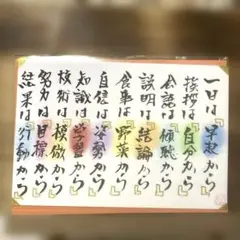 一日は「早起」から
挨拶は「自分」から
会話は「傾聴」から
説明は「結論」から
食事は「野菜」から
自信は「姿勢」から
知識は「学習」から
技術は「模倣」から
努力は「目標」から
結果は「行動」から